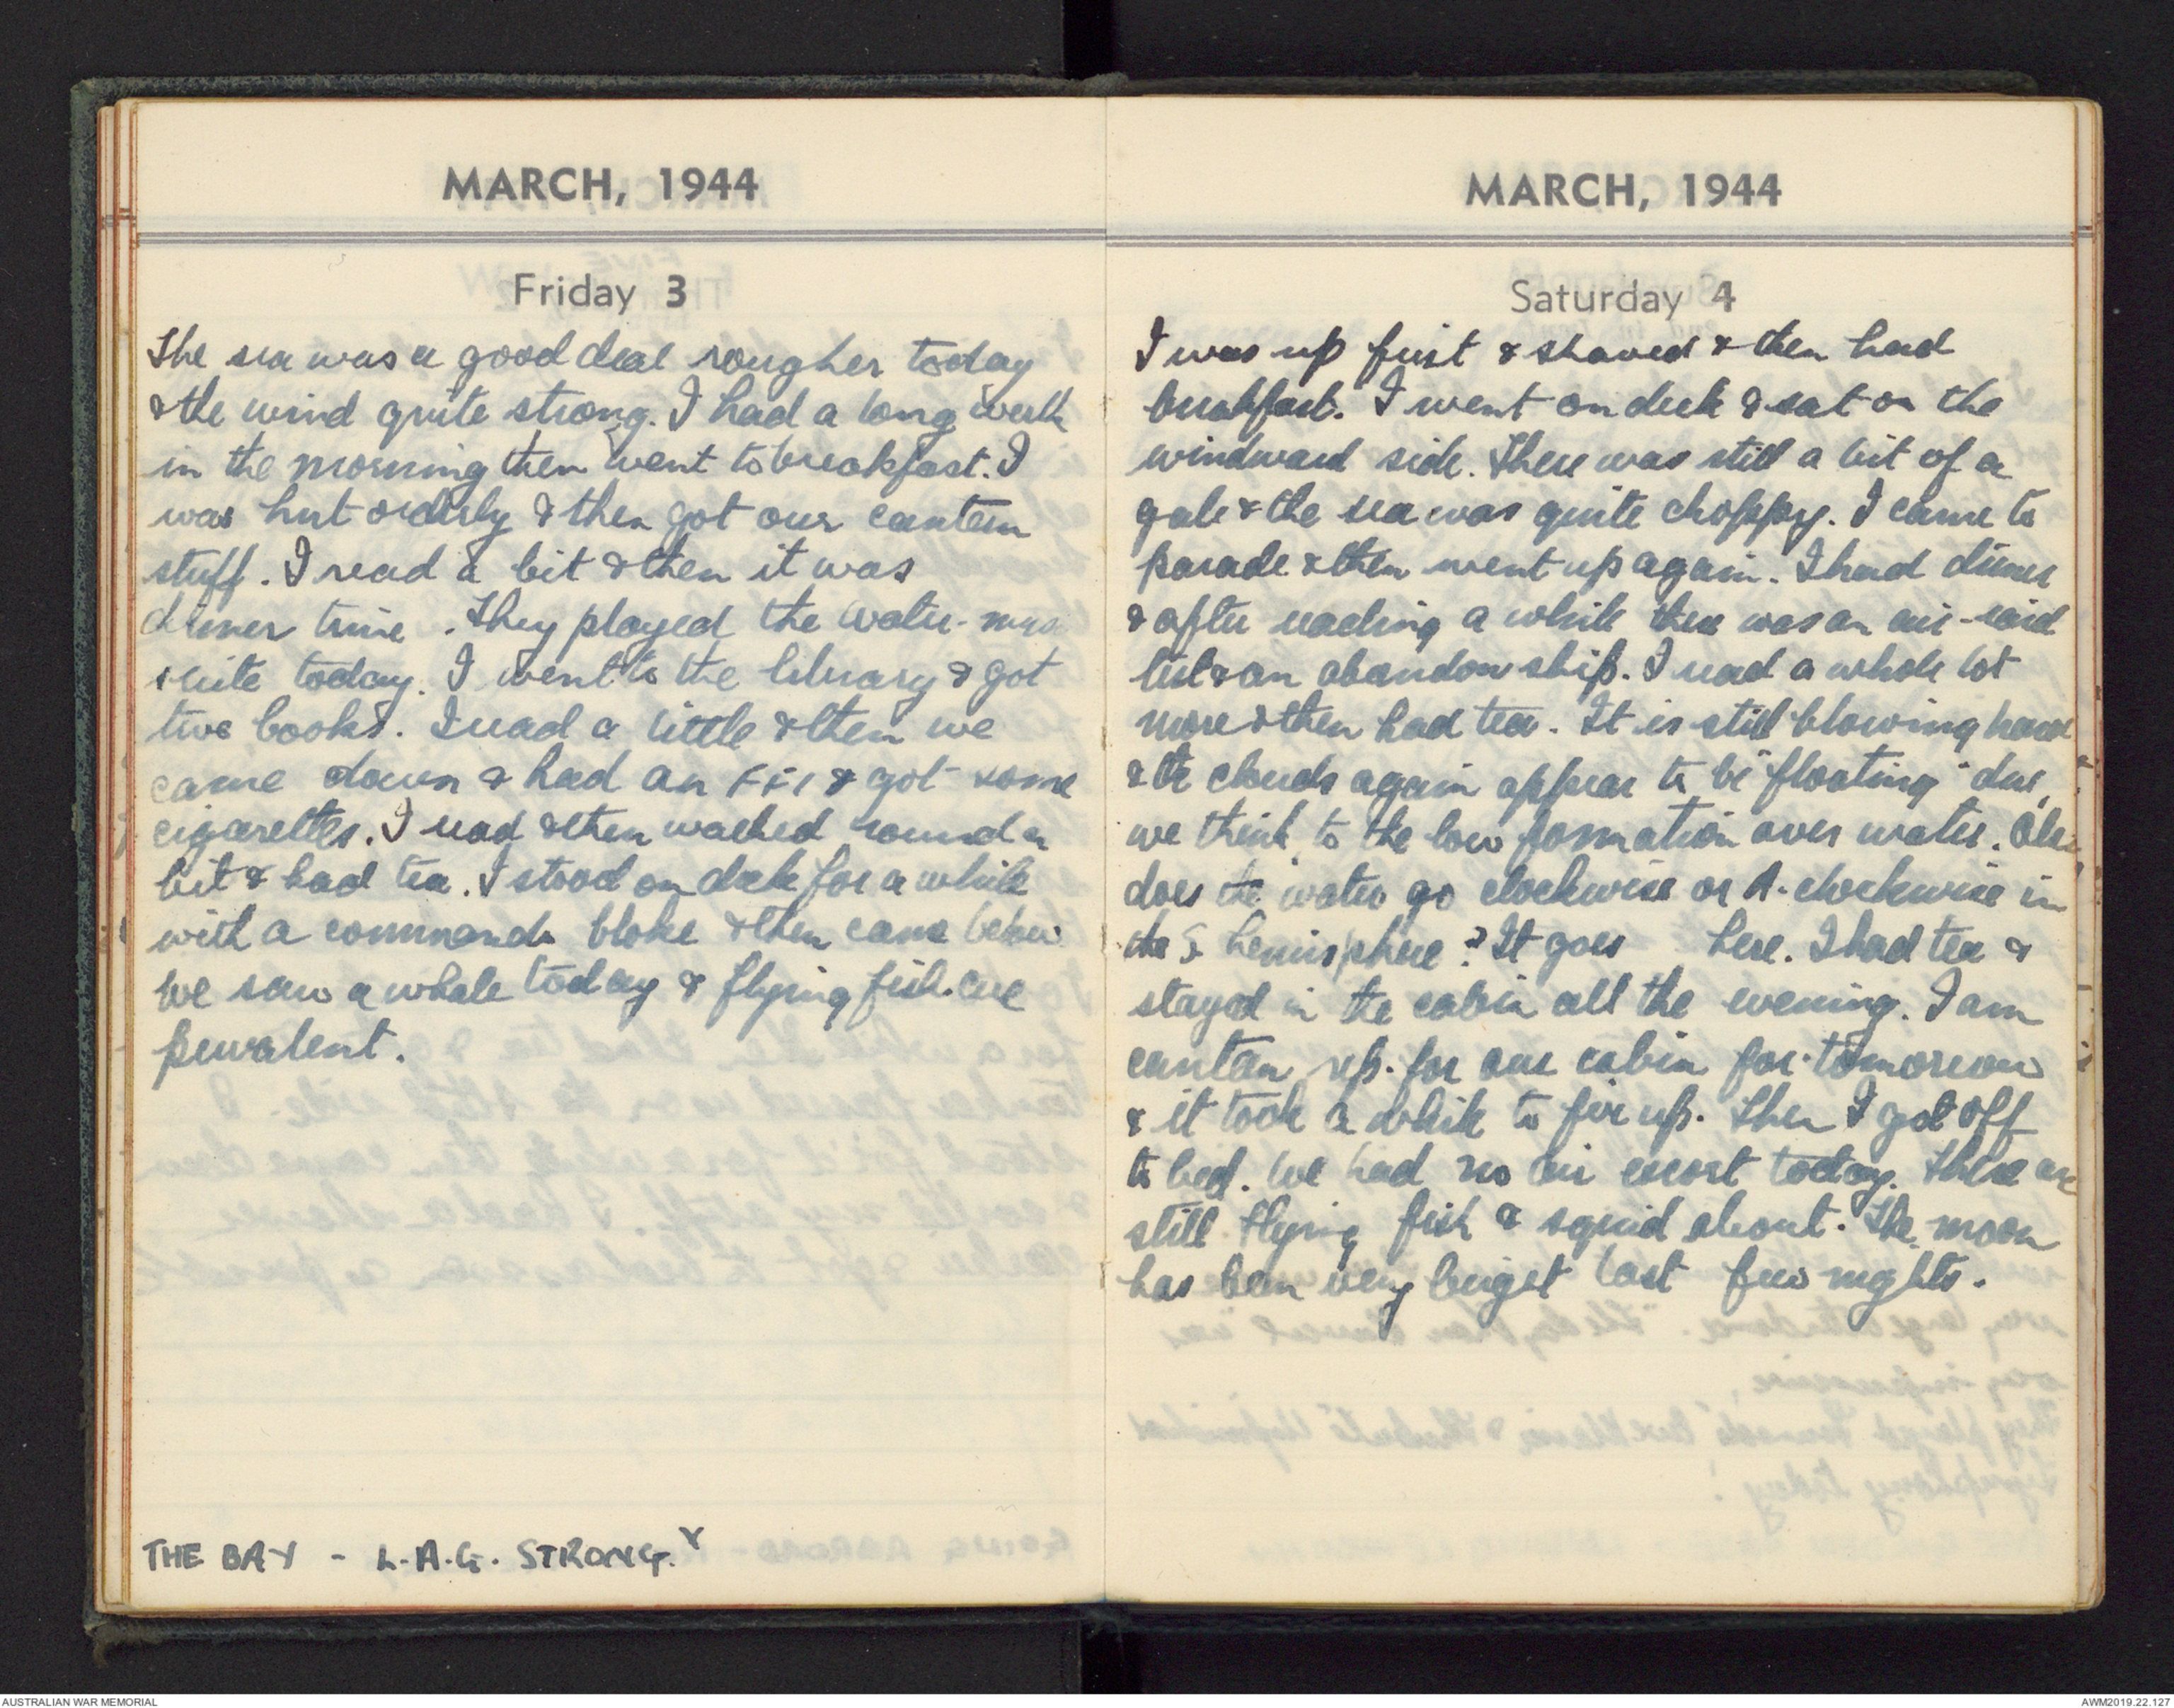 MARCH, 1944
Friday 3
The sea was a good deal rougher today
& the wind quite strong. I had a long walk
in the morning then went to breakfast. I
was hut orderly & then got our canteen
stuff. I read a bit & then it was
dinner time. They played the Water-music
suite today. I went to the library & got
two books. I read a little & then we
came down & had an FFI & got some
cigarettes. I read & then walked round a
bit & had tea. I stood on deck for a while
with a commando bloke & then came below
We saw a whale today & flying fish are
prevalent.
THE BAY - L.A.G. STRONG.
MARCH, 1944
Saturday 4
I was up first & shaved & then had
breakfast. I went on deck & sat on the
windward side. There was still a bit of a
gale & the sea was quite choppy. I came to
parade & then went up again. I had dinner
& after reading a while there was an air-raid
test & an abandon ship. I read a whole lot
more & then had tea. It is still blowing hard
& the clouds again appear to be "floating" due,
we think, to the low formation over water. Also
does the water go clockwise or A. clockwise in
the S. hemisphere? It goes here. I had tea &
stayed in the cabin all the evening. I am
canteen rep. for our cabin for tomorrow
& it took a while to fix up. Then I got off
to bed. We had no air escort today. There are
still flying fish & squid about. The moon
has been very bright last few nights.
AUSTRALIAN WAR MEMORIAL
AWM2019.22.127